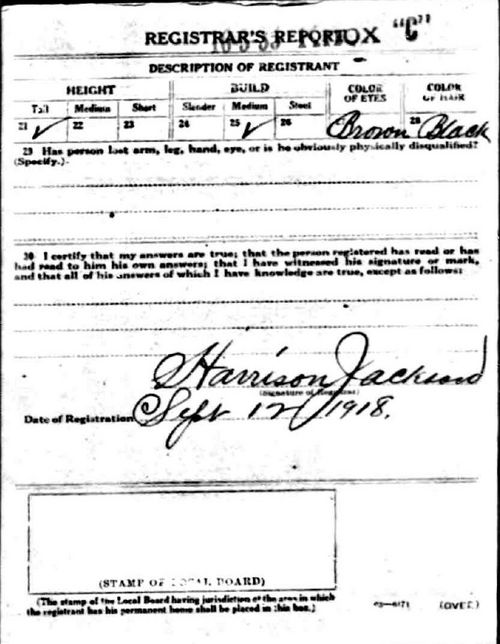 REGISTRAR'S REPORT
"C"
DESCRIPTION OF REGISTRANT
HEIGHT BUILD COLOR OF EYES COLOR OF HAIR
Tall Medium Short Slender Medium Stout
21 ✓ 22 23 24 25 ✓ 26 Brown 28 Black
29 Has person lost arm, leg, hand, eye, or is he obviously physically disqualified?
(Specify.)
30 I certify that my answers are true; that the person registered has read or has
had read to him his own answers; that I have witnessed his signature or mark,
and that all of his answers of which I have knowledge are true, except as follows:
Harrison Jackson
(Signature of Registrar)
Date of Registration Sept 12 1918.
(STAMP OF LOCAL BOARD)
(The stamp of the Local Board having jurisdiction of the area in which
the registrant has his permanent home shall be placed in this box.)
(OVER)